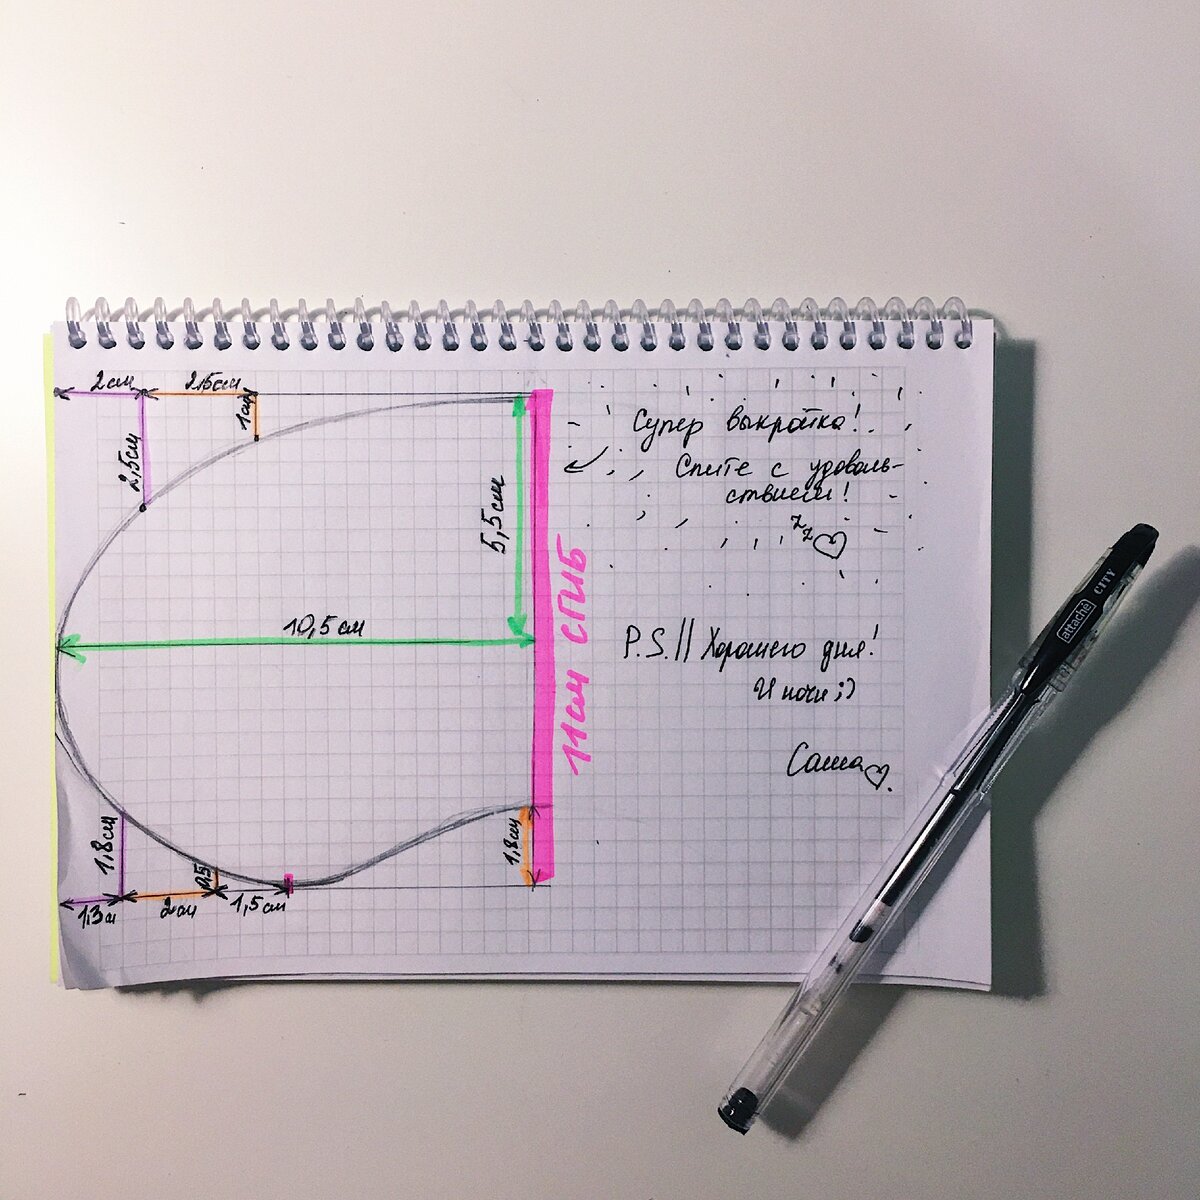 2см
2,5см
1см
2,5см
5,5см
10,5см
11см СГИБ
1,8см
1,8см
0,5
1,3м
2см
1,5см
Супер выкройка!
Спите с удоволь-
ствием!
zz
P.S.|| Хорошего дня!
И ночи ;)
Саша
attaché
CITY